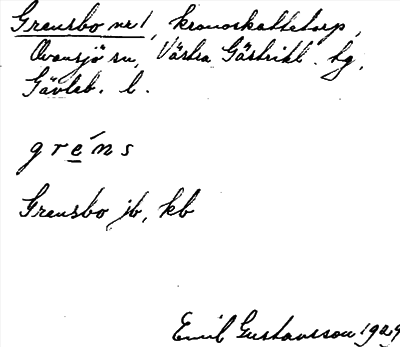 Grensbo nr 1, kronoskattetorp,
Ovansjö sn, Västra Gästrikl. tg,
Gävleb. l.
gréns
Grensbo jb, kb
Emil Gustavsson 1929